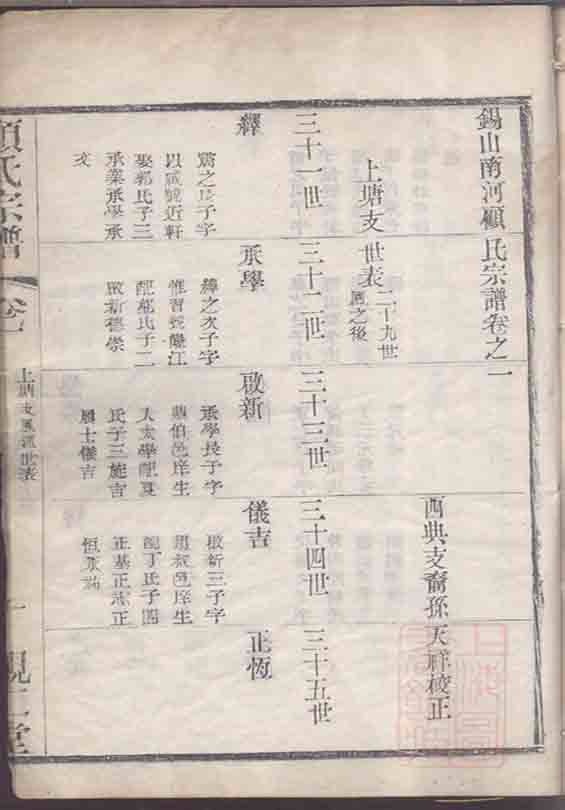 錫山南河顧氏宗譜卷之一
酉典支裔孫天祥校正
上塘支世表二十九世
鳳之後
三十一世
三十二世
三十三世
三十四世
三十五世
繹
之長子字
以咸號近軒
娶郭氏子三
承業承學承
文
承學
繹之次子字
惟習號
配苑氏子二
啟新德崇
啟新
承學長子字
伯邑庠生
入太學配夏
氏子三施吉
士儀吉
儀吉
啟新三子字
邑庠生
配丁氏子四
正基正志正
恒
正恆
顧氏宗譜
卷一
上塘支鳳派世表
一
堂